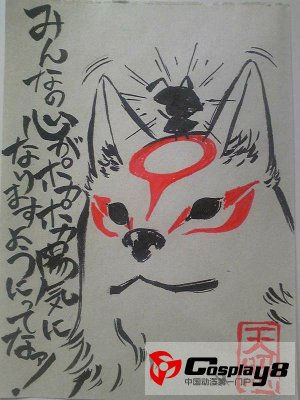 みんなの心がポカポカ陽気に
なりますようにってなッ!
天
Cosplay8
中国动漫第一门户